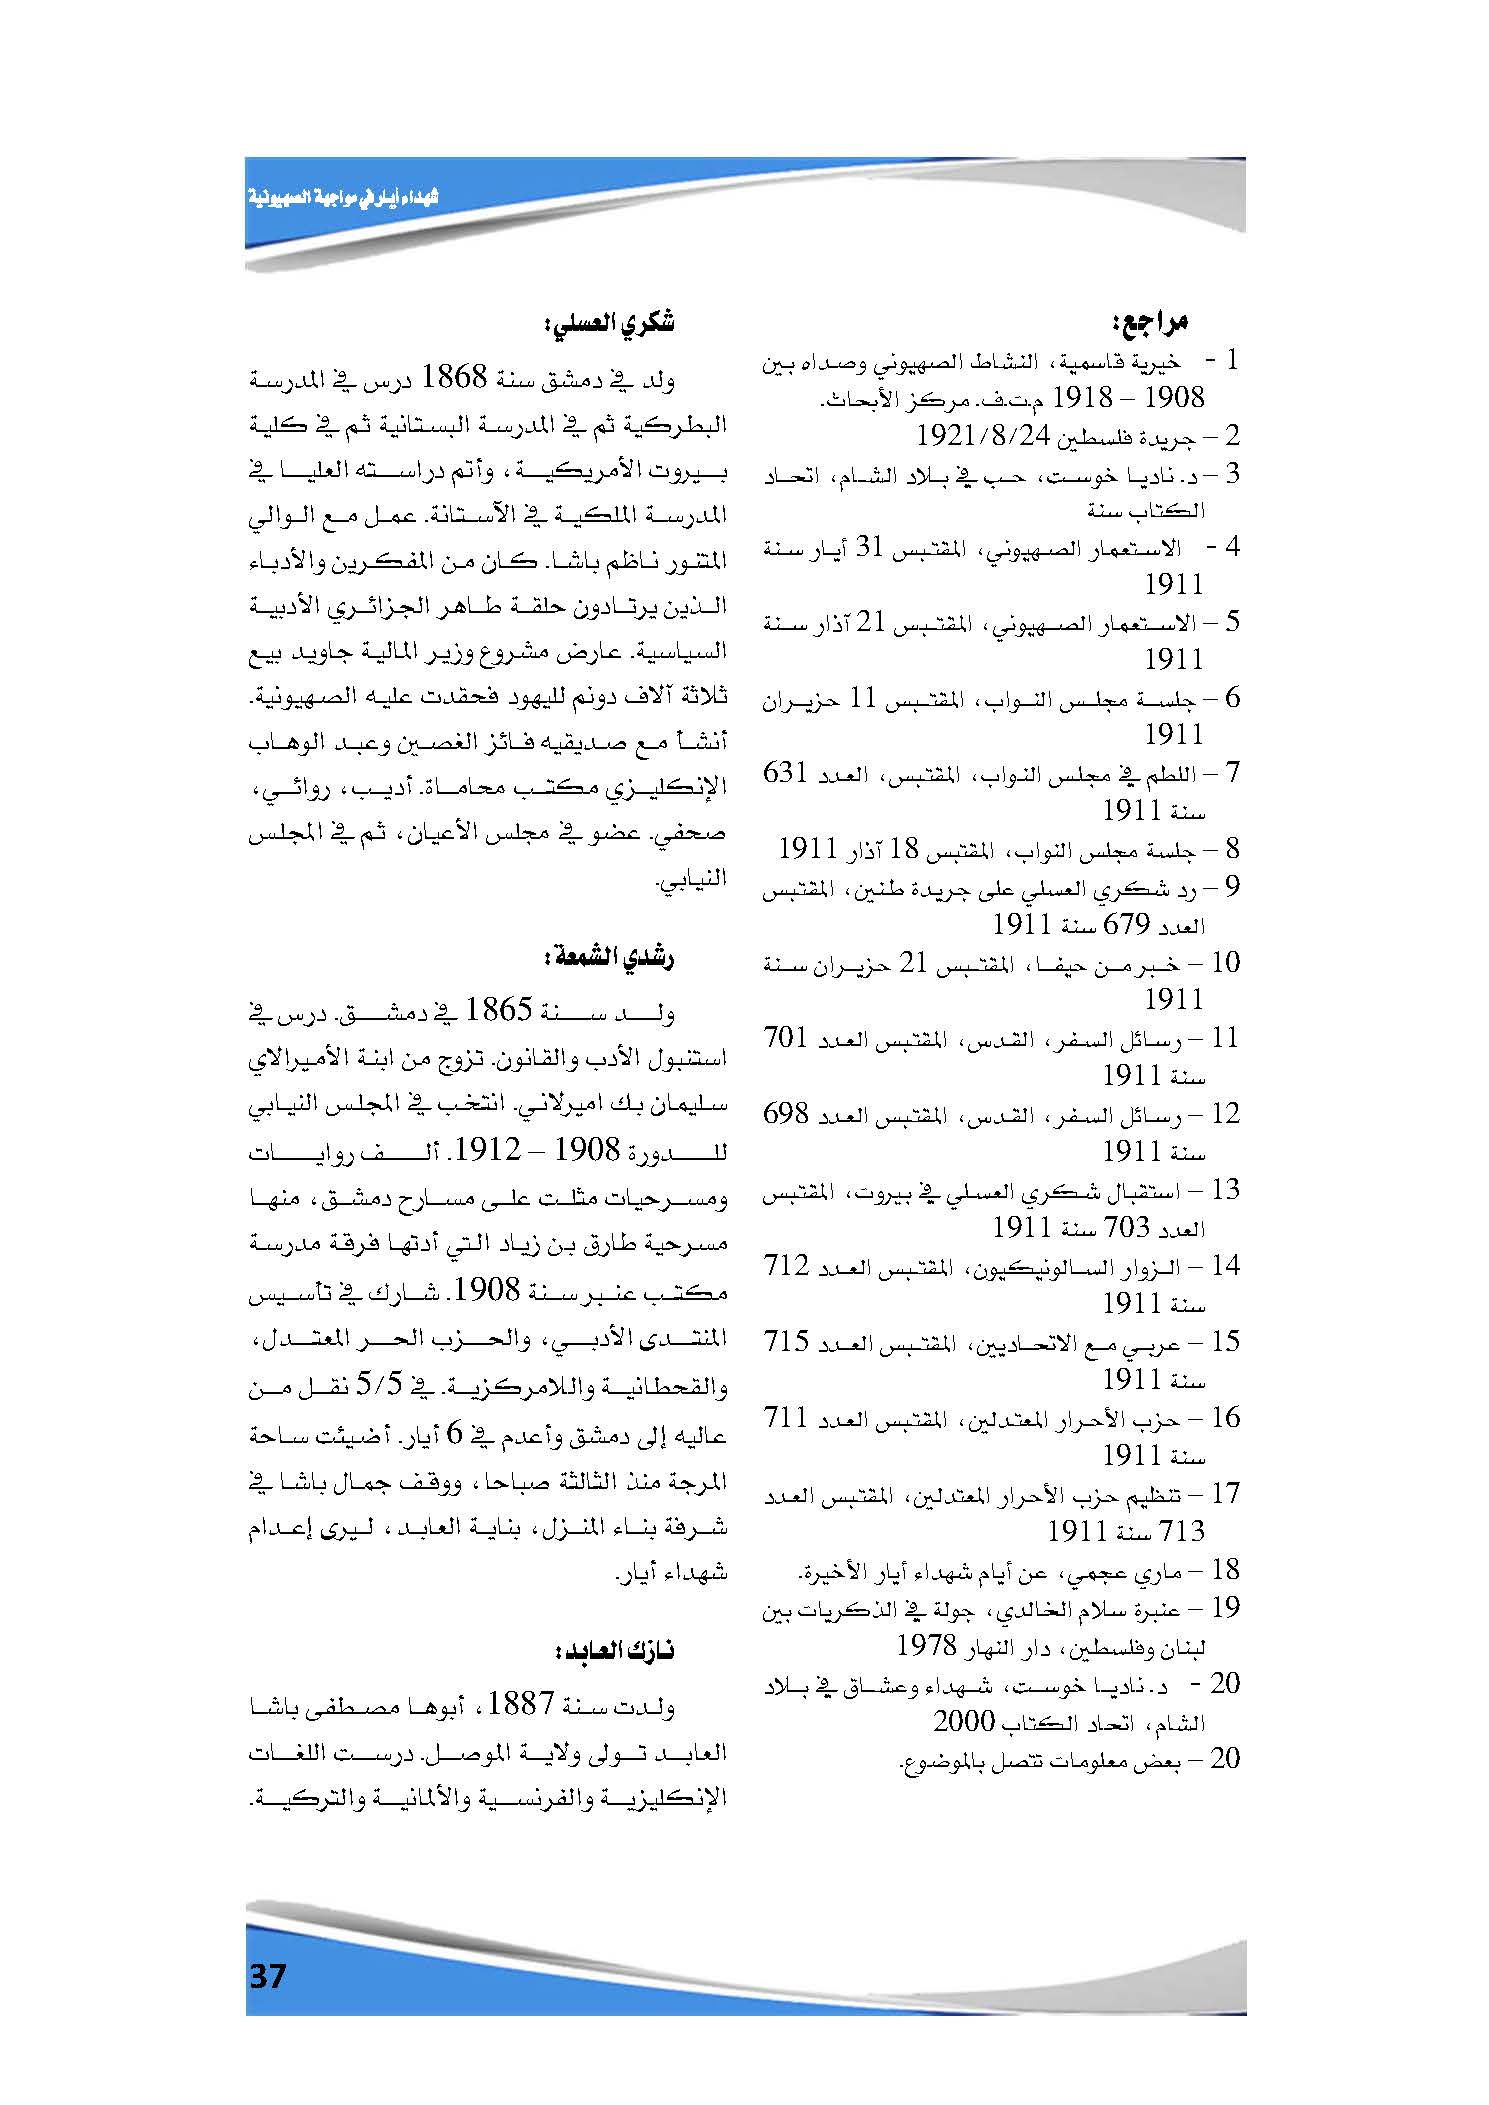 شهداء أيار في مواجهة الصهيونية
مراجع:
1 - خيرية قاسمية، النشاط الصهيوني وصداه بين
1908 – 1918 م.ت.ف. مركز الأبحاث.
2 – جريدة فلسطين 1921/8/24
3 – د. ناديا خوست، حب في بلاد الشام، اتحاد
الكتاب سنة
4 - الاستعمار الصهيوني، المقتبس 31 أيار سنة
1911
5 – الاستعمار الصهيوني، المقتبس 21 آذار سنة
1911
6 – جلسة مجلس النواب، المقتبس 11 حزيران
1911
7 – اللطم في مجلس النواب، المقتبس، العدد 631
سنة 1911
8 – جلسة مجلس النواب، المقتبس 18 آذار 1911
9 – رد شكري العسلي على جريدة طنين، المقتبس
العدد 679 سنة 1911
10 – خبر من حيفا، المقتبس 21 حزيران سنة
1911
11 – رسائل السفر، القدس، المقتبس العدد 701
سنة 1911
12 – رسائل السفر، القدس، المقتبس العدد 698
سنة 1911
13 – استقبال شكري العسلي في بيروت، المقتبس
العدد 703 سنة 1911
14 – الزوار السالونيكيون، المقتبس العدد 712
سنة 1911
15 – عربي مع الاتحاديين، المقتبس العدد 715
سنة 1911
16 – حزب الأحرار المعتدلين، المقتبس العدد 711
سنة 1911
17 – تنظيم حزب الأحرار المعتدلين، المقتبس العدد
713 سنة 1911
18 – ماري عجمي، عن أيام شهداء أيار الأخيرة.
19 – عنبرة سلام الخالدي، جولة في الذكريات بين
لبنان وفلسطين، دار النهار 1978
20 - د. ناديا خوست، شهداء وعشاق في بلاد
الشام، اتحاد الكتاب 2000
20 – بعض معلومات تتصل بالموضوع.
شكري العسلي:
ولد في دمشق سنة 1868 درس في المدرسة
البطركية ثم في المدرسة البستانية ثم في كلية
بيروت الأمريكية، وأتم دراسته العليا في
المدرسة الملكية في الآستانة. عمل مع الوالي
المتنور ناظم باشا. كان من المفكرين والأدباء
الذين يرتادون حلقة طاهر الجزائري الأدبية
السياسية. عارض مشروع وزير المالية جاويد بيع
ثلاثة آلاف دونم لليهود فحقدت عليه الصهيونية.
أنشأ مع صديقيه فائز الغصين وعبد الوهاب
الإنكليزي مكتب محاماة. أديب، روائي،
صحفي. عضو في مجلس الأعيان، ثم في المجلس
النيابي.
رشدي الشمعة:
ولد سنة 1865 في دمشق. درس في
استنبول الأدب والقانون. تزوج من ابنة الأميرالاي
سليمان بك اميرلاني. انتخب في المجلس النيابي
للدورة 1908 – 1912. ألف روايات
ومسرحيات مثلت على مسارح دمشق، منها
مسرحية طارق بن زياد التي أدتها فرقة مدرسة
مكتب عنبر سنة 1908. شارك في تأسيس
المنتدى الأدبي، والحزب الحر المعتدل،
والقحطانية واللامركزية. في 5/5 نقل من
عاليه إلى دمشق وأعدم في 6 أيار. أضيئت ساحة
المرجة منذ الثالثة صباحا، ووقف جمال باشا في
شرفة بناء المنزل، بناية العابد، ليرى إعدام
شهداء أيار.
نازك العابد:
ولدت سنة 1887، أبوها مصطفى باشا
العابد تولى ولاية الموصل. درست اللغات
الإنكليزية والفرنسية والألمانية والتركية.
37